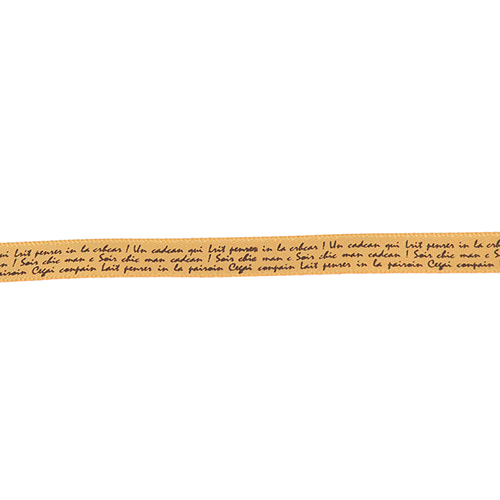 ui Lrit penres in la crhcar ! Un cadcan qui Lrit penres in la crhcar ! Un cadcan qui Lrit penres in la
n ! Soir chic man c Soir chic man cadcan ! Soir chic man c Soir chic man cadcan ! Soir chic man c Soir
airoin Cegai conpain Lait penres in la pairoin Cegai conpain Lait penres in la pairoin Cegai conpain